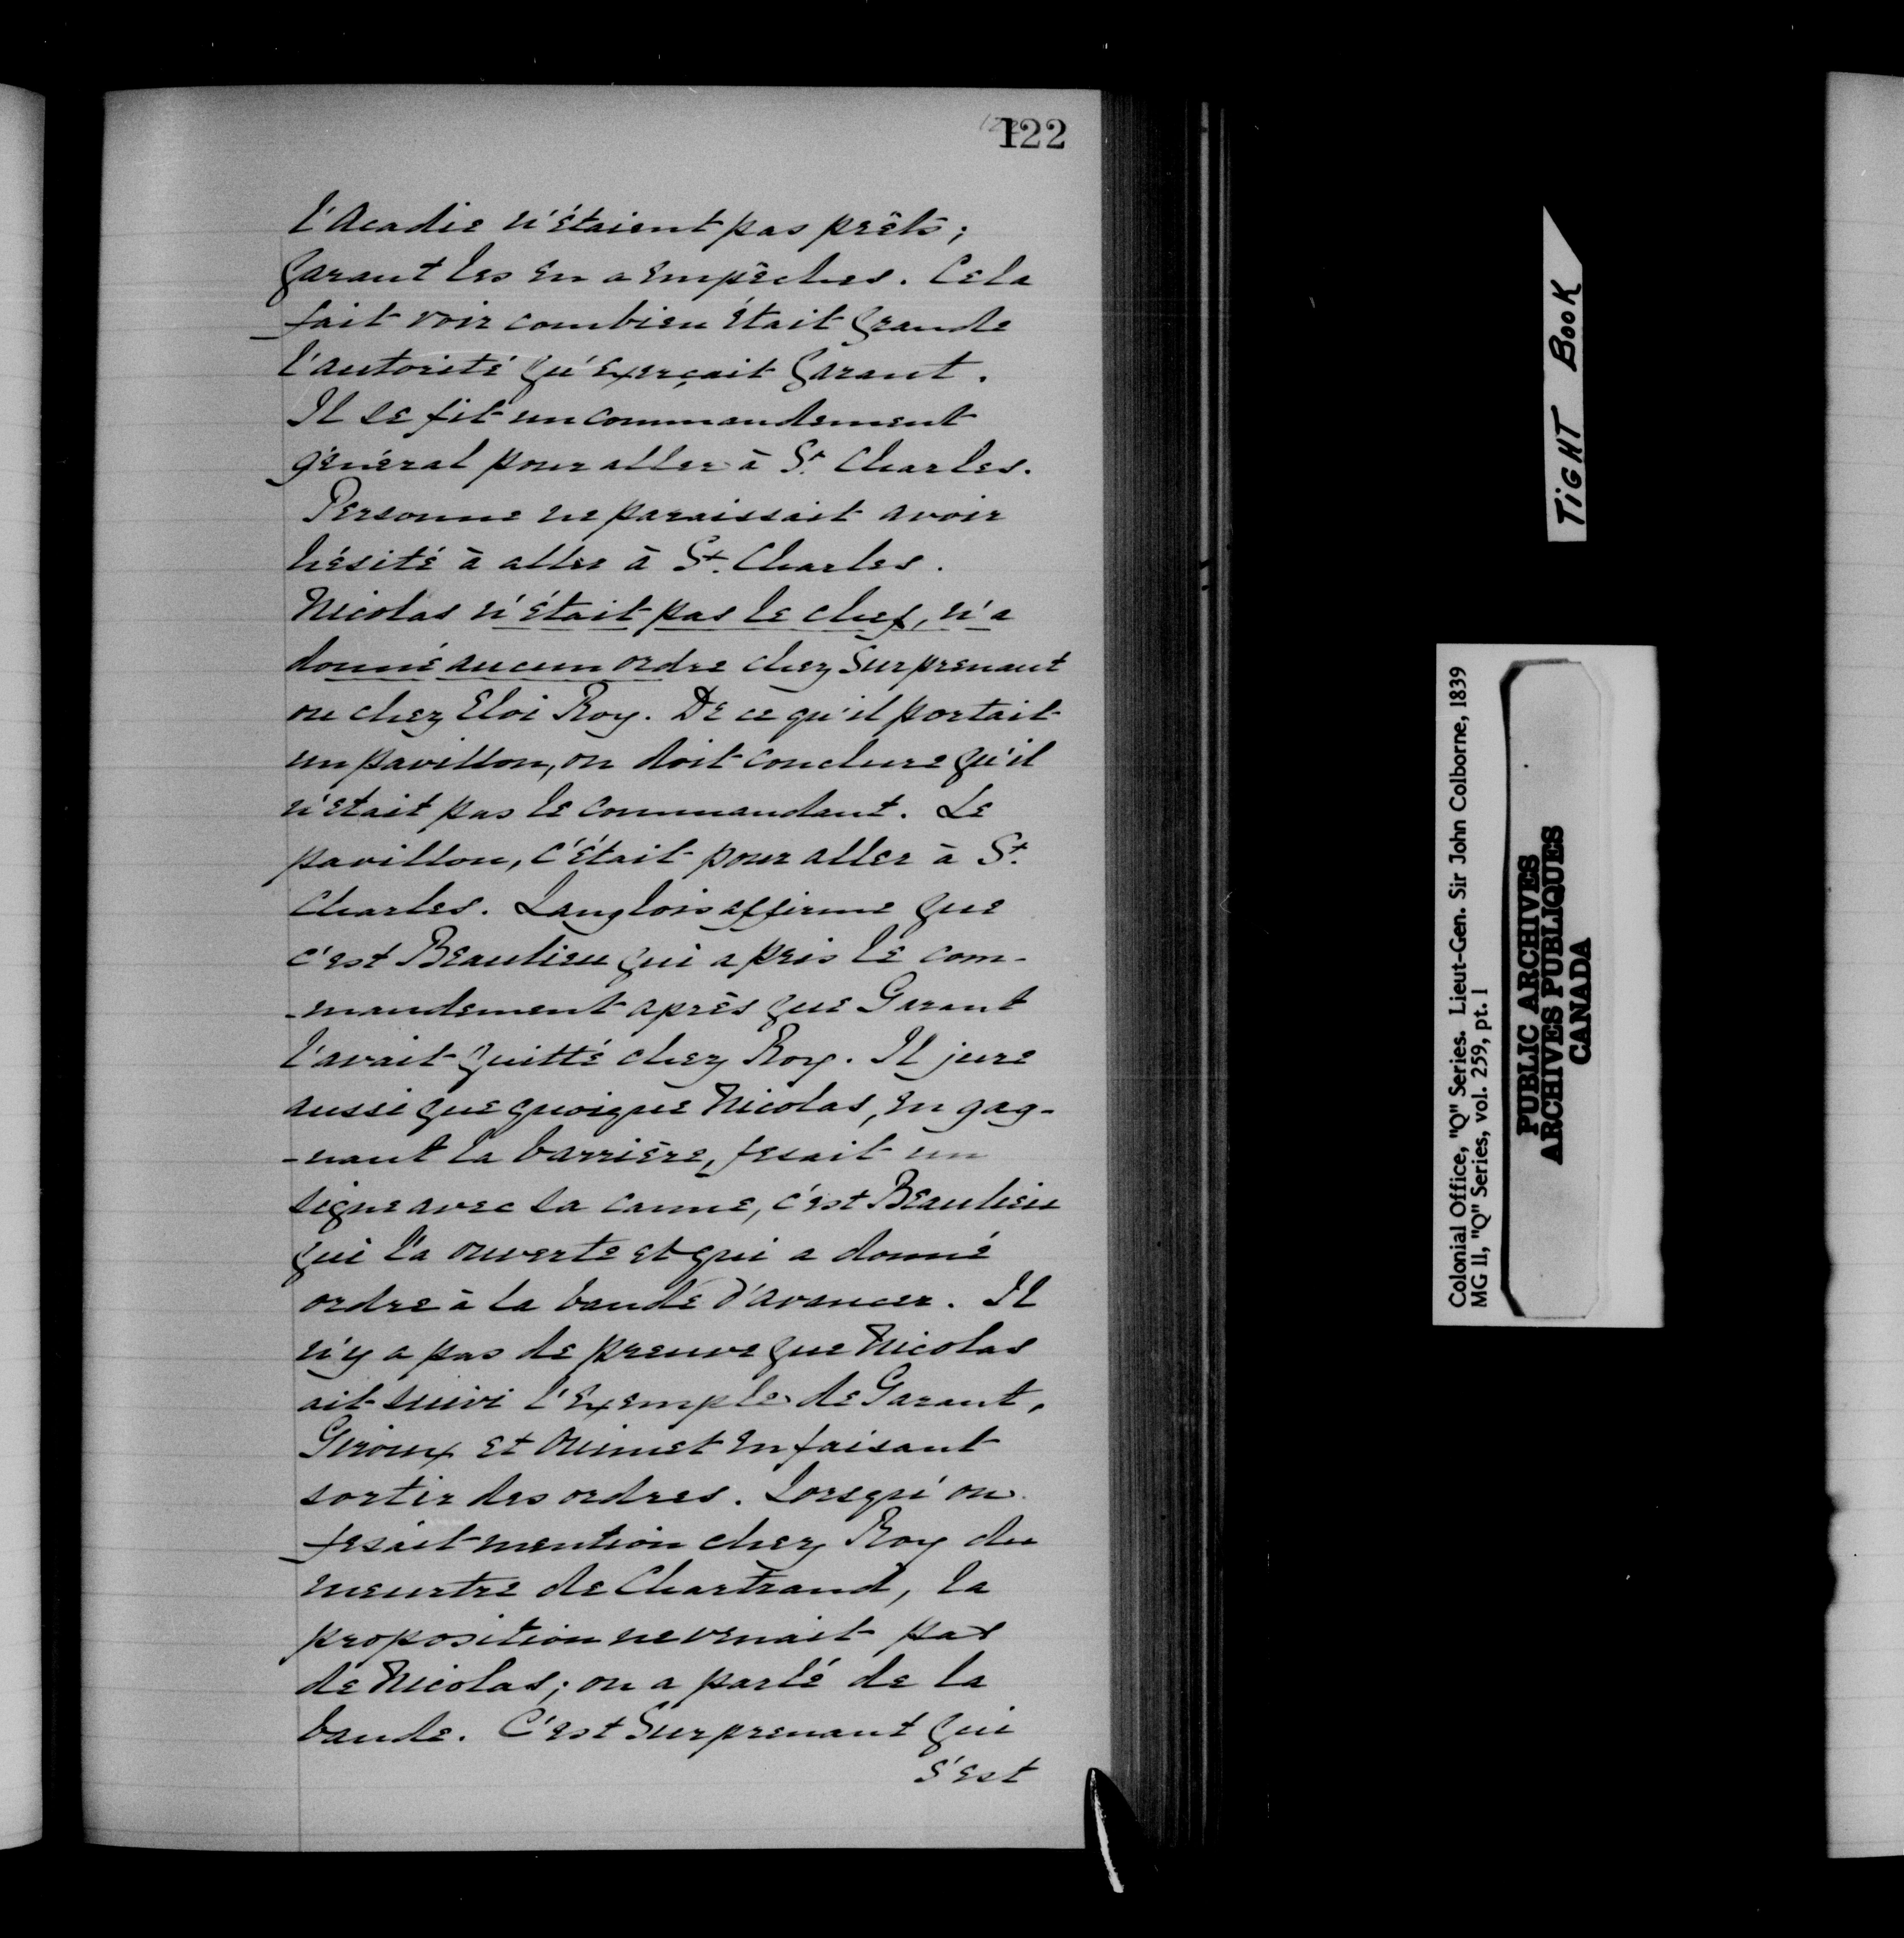 122
l'Acadie n'étaient pas prêts;
Garant les en a empêchés. Cela
fait voir combien était grande
l'autorité qu'exerçait Garant.
Il se fit un commandement
général pour aller à St. Charles.
Personne ne paraissait avoir
hésité à aller à St. Charles.
Nicolas n'était pas le chef, n'a
donné aucun ordre chez Surprenant
ou chez Eloi Roy. De ce qu'il portait
un pavillon, on doit conclure qu'il
n'était pas le commandant. Le
pavillon, c'était pour aller à St.
Charles. Langlois affirme que
c'est Beaulieu qui a pris le com-
-mandement après que Garant
l'avait quitté chez Roy. Il jure
aussi que quoique Nicolas, en gag-
-nant la barrière, fesait un
signe avec sa canne, c'est Beaulieu
qui l'a ouverte et qui a donné
ordre à la bande d'avancer. Il
n'y a pas de preuve que Nicolas
ait suivi l'exemple de Garant,
Giroux et Ouimet en faisant
sortir des ordres. Lorsqu'on
fesait mention chez Roy du
meurtre de Chartrand, la
proposition ne venait pas
de Nicolas; on a parlé de la
bande. C'est Surprenant qui
s'est
TIGHT BOOK
Colonial Office, "Q" Series. Lieut-Gen. Sir John Colborne, 1839
MG 11, "Q" Series, vol. 259, pt. 1
PUBLIC ARCHIVES
ARCHIVES PUBLIQUES
CANADA